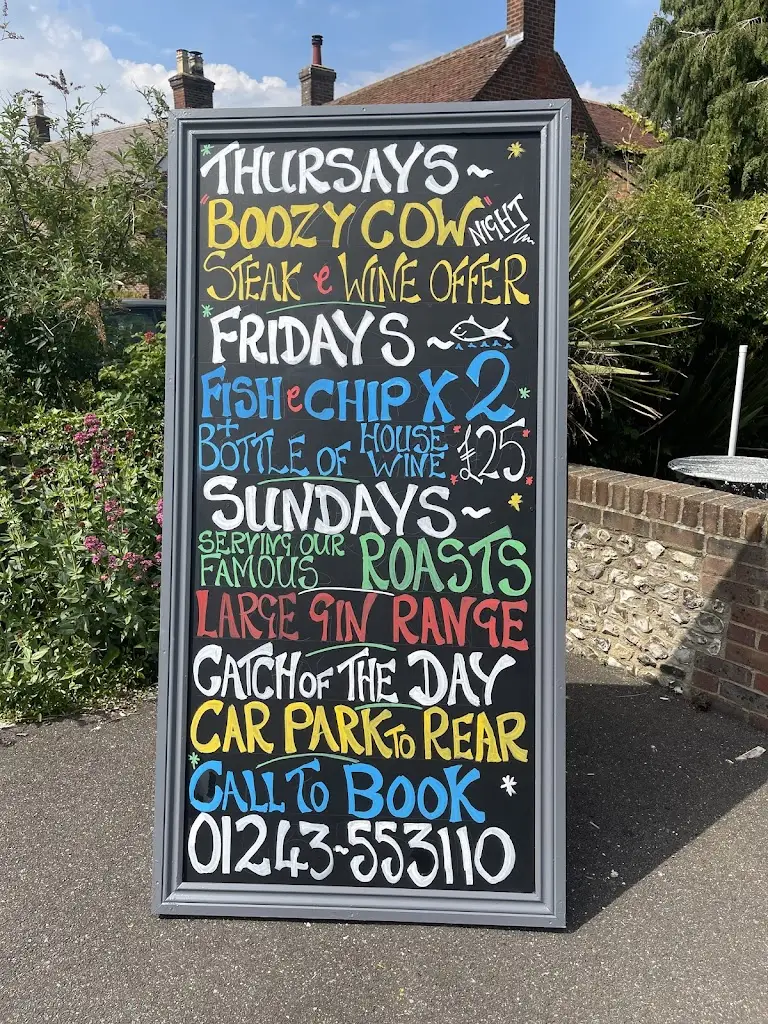 THURSAYS~
"BOOZY COW" NIGHT
STEAK e WINE OFFER
FRIDAYS ~
FISH e CHIP X 2
+ BOTTLE OF HOUSE WINE £25
SUNDAYS ~
SERVING OUR FAMOUS ROASTS
LARGE GIN RANGE
CATCH OF THE DAY
CAR PARK TO REAR
CALL TO BOOK
01243~553110